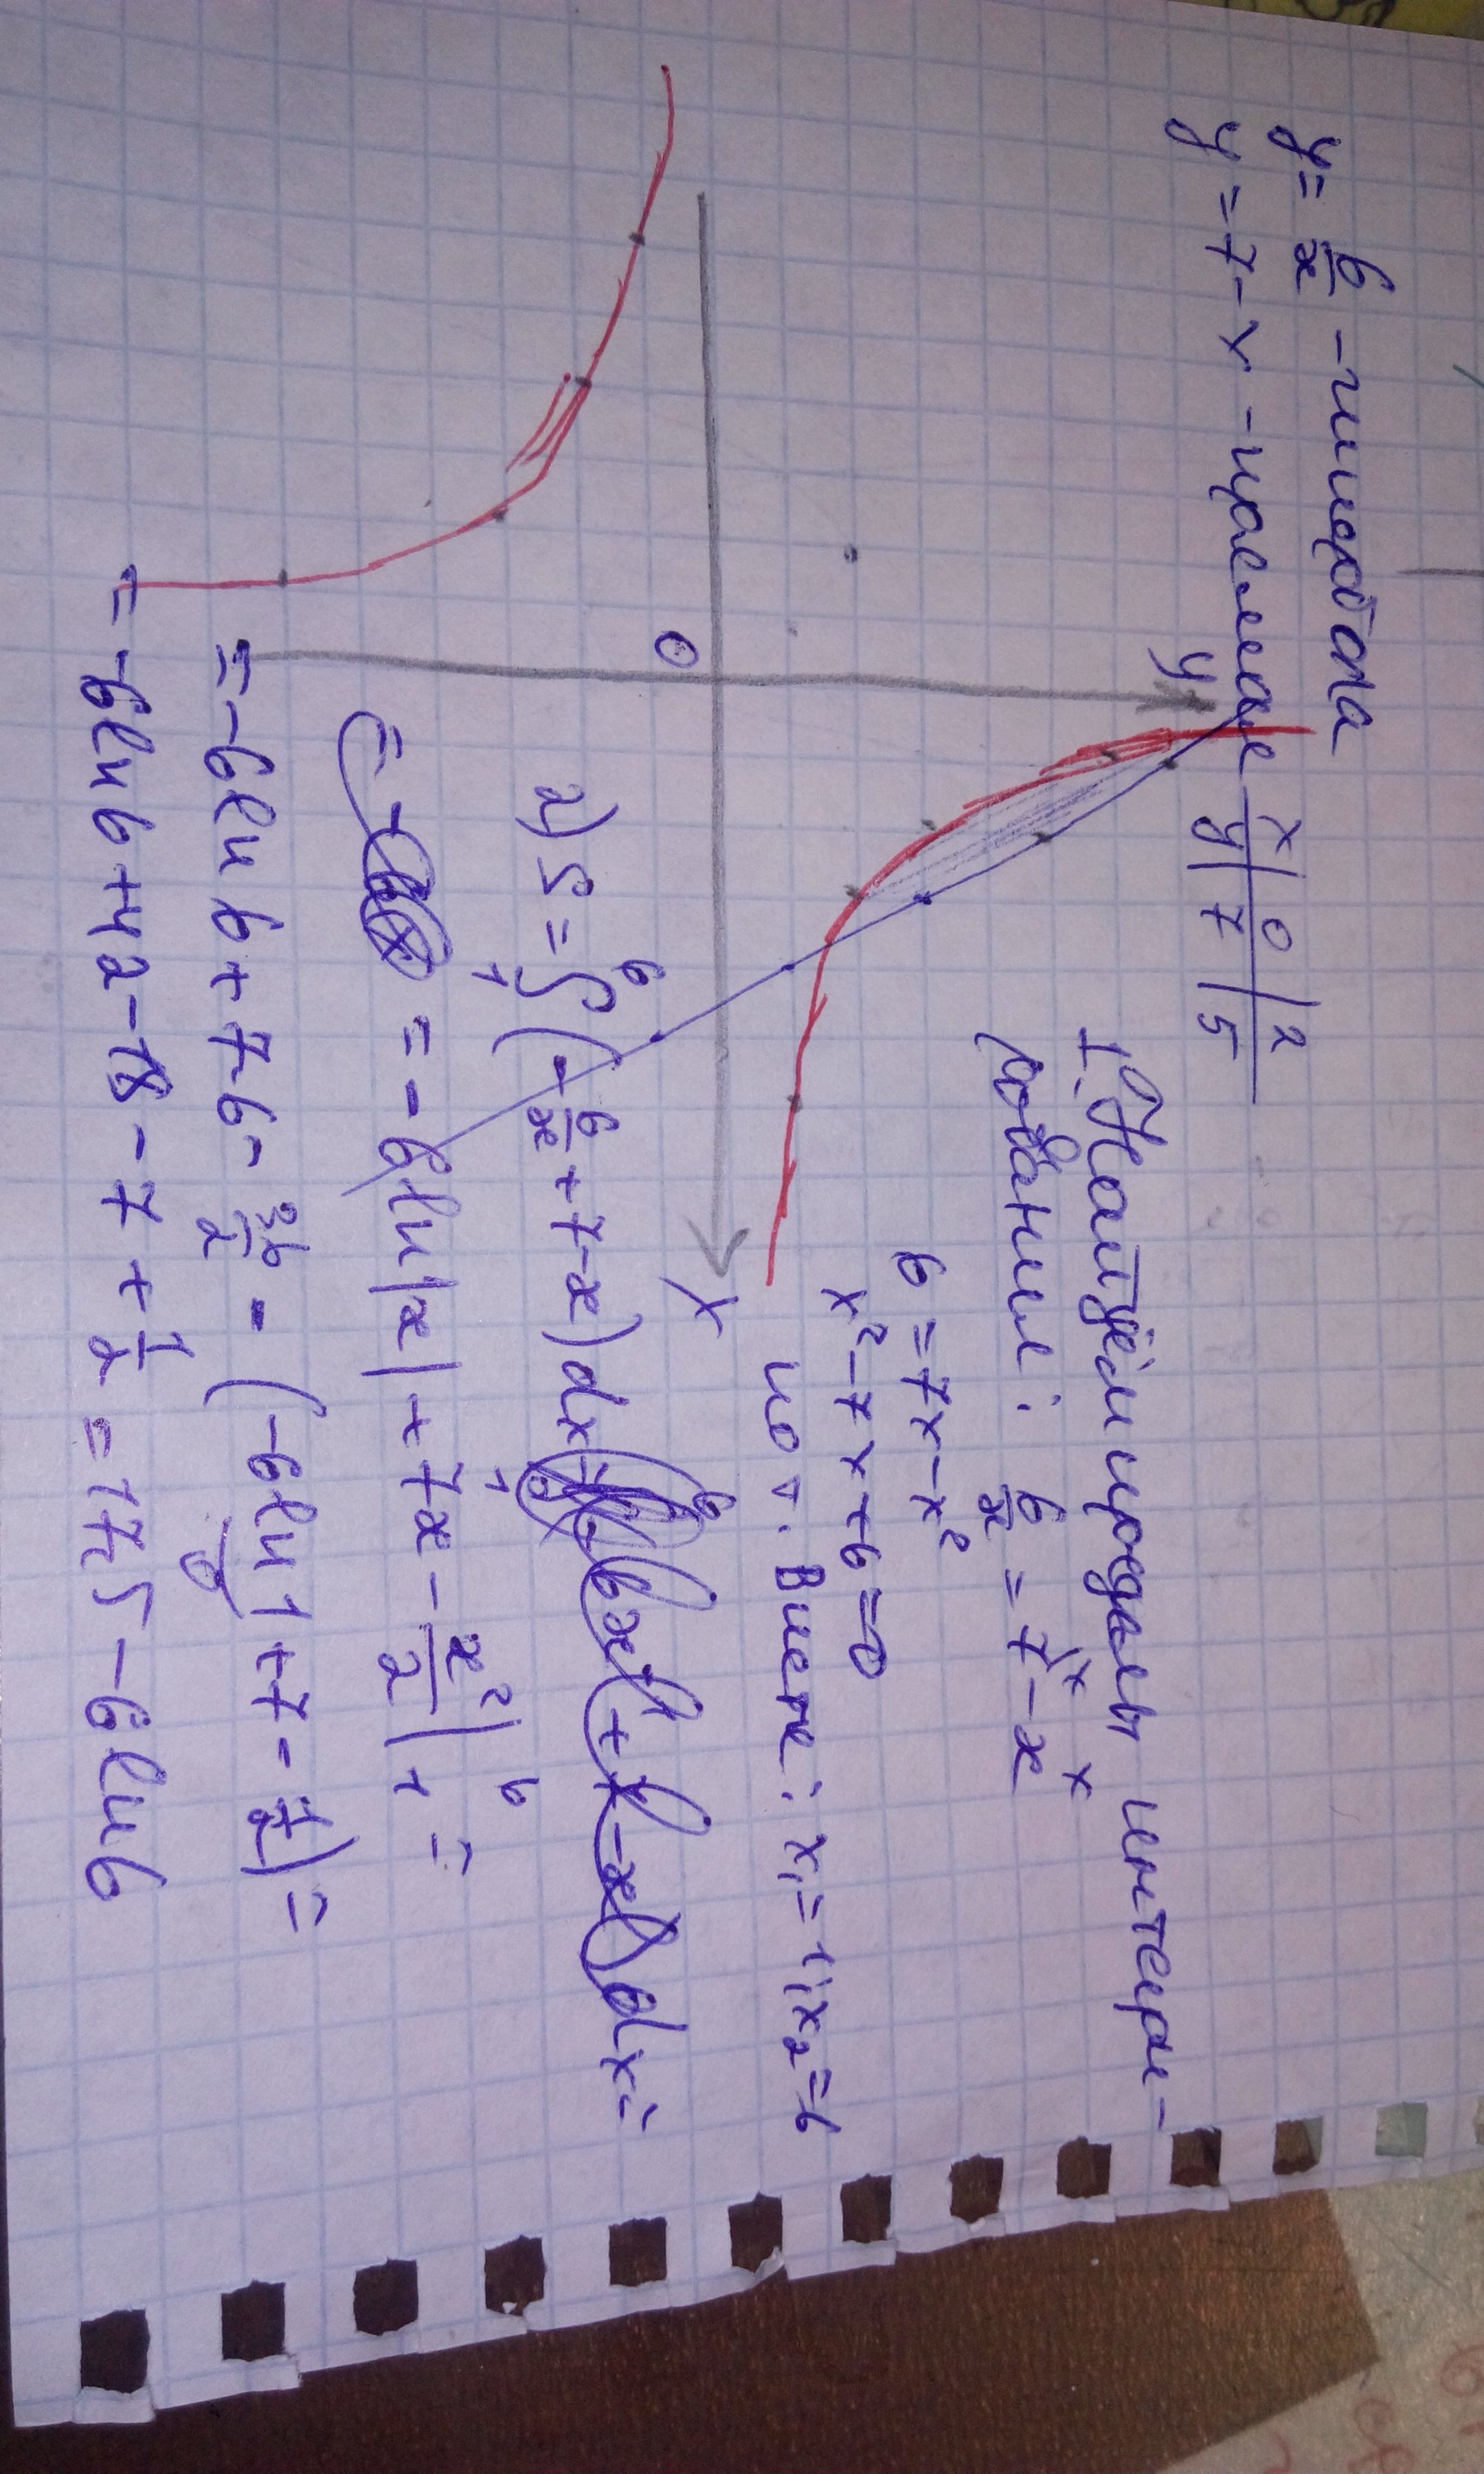 y = 6/x - гипербола
y = 7 - x - прямая
x | 0 | 2
y | 7 | 5
1. Найдём пределы интегри-
рования: 6/x = 7 - x
6 = 7x - x²
x² - 7x + 6 = 0
по т. Виета: x₁ = 1; x₂ = 6
y
0
x
2) S = ∫₁⁶ (-6/x + 7 - x) dx
= -6ln|x| + 7x - x²/2 |₁⁶ =
= -6ln6 + 7·6 - 36/2 - (-6ln1 + 7 - 1/2) =
0
= -6ln6 + 42 - 18 - 7 + 1/2 = 17,5 - 6ln6